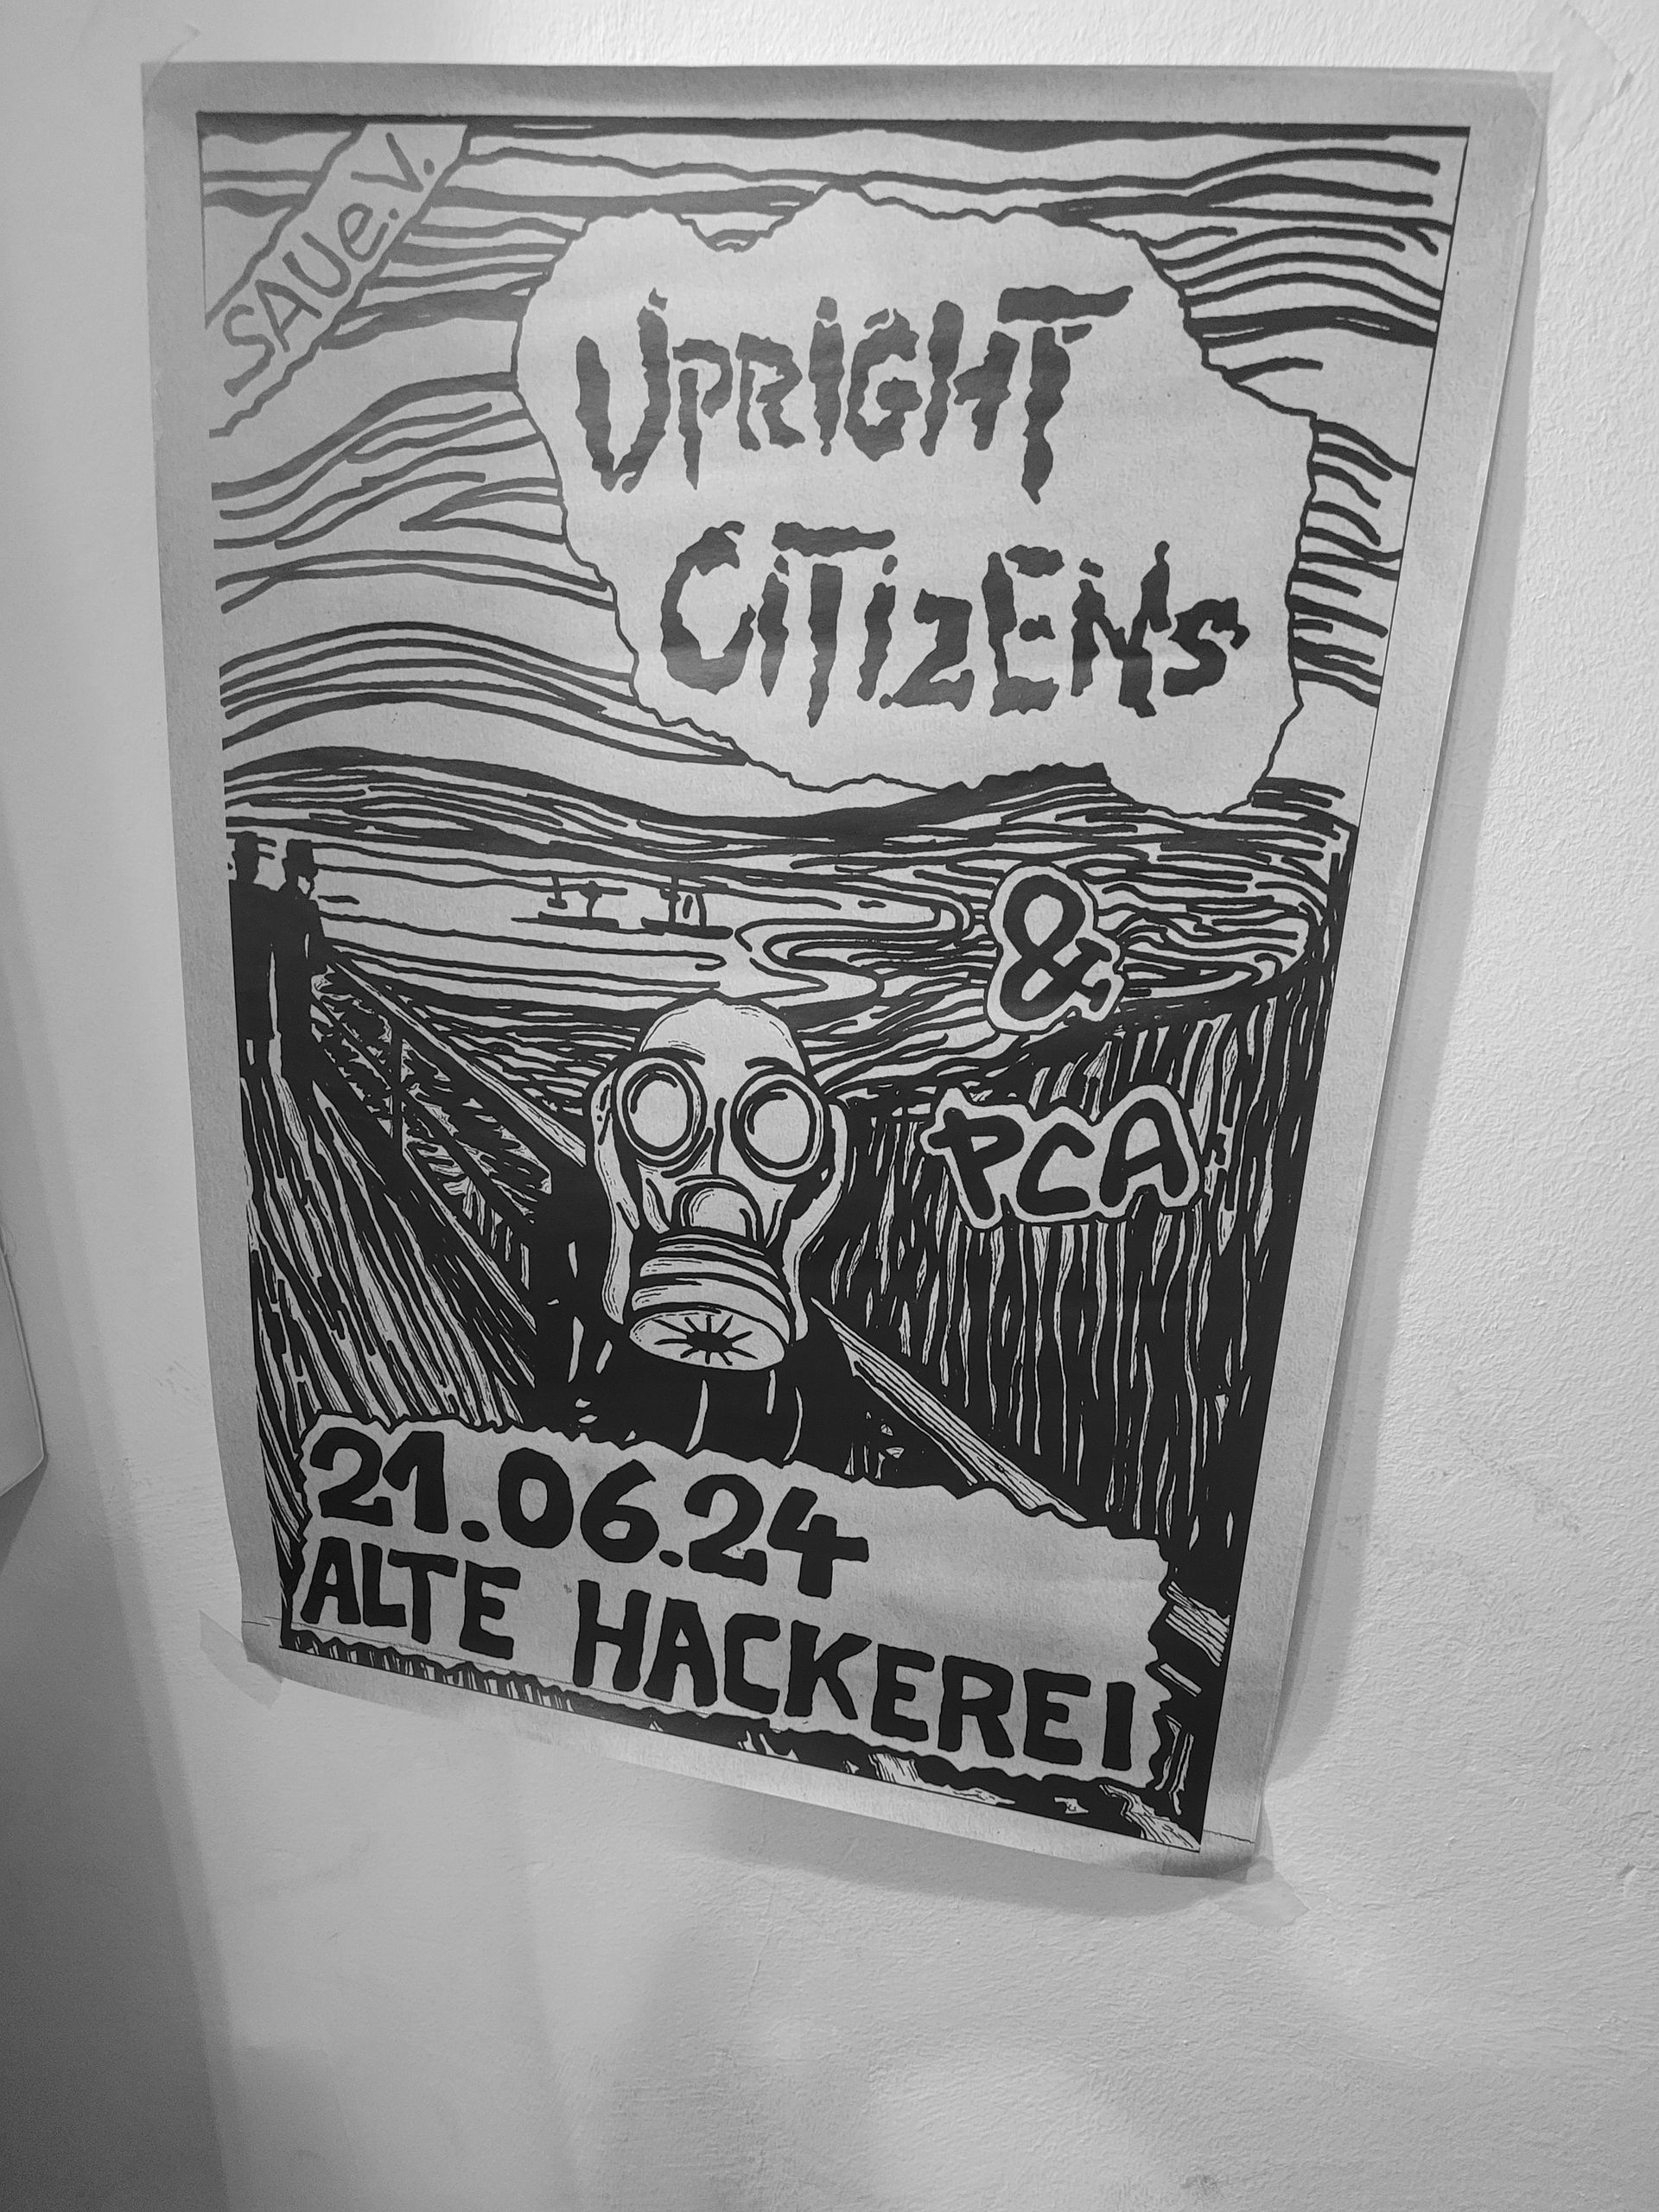 SAU e.V.
UPRIGHT
CiTiZENS
&
PCA
21.06.24
ALTE HACKEREI